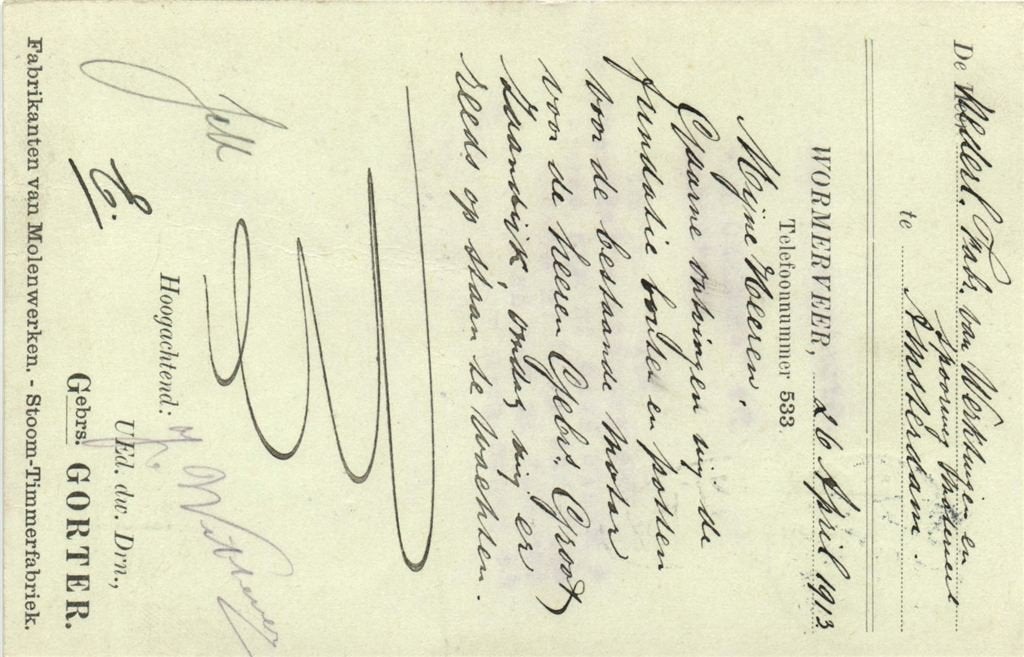 De Nederl. Fabr. van Werktuigen en
Spoorweg Materieel
te Amsterdam.
WORMERVEER, 26 April 1913
Telefoonnummer 533.
Mijne Heeren.
Gaarne ontvingen wij de
fundatie bouten en potten
voor de bestaande Motor
voor de heeren Gebrs. Groot
Zaandijk, omdat wij er
reeds op staan te wachten.
Hoogachtend:
UEd. dw. Drn.,
Gebrs. GORTER.
E.
Fabrikanten van Molenwerken. - Stoom-Timmerfabriek.